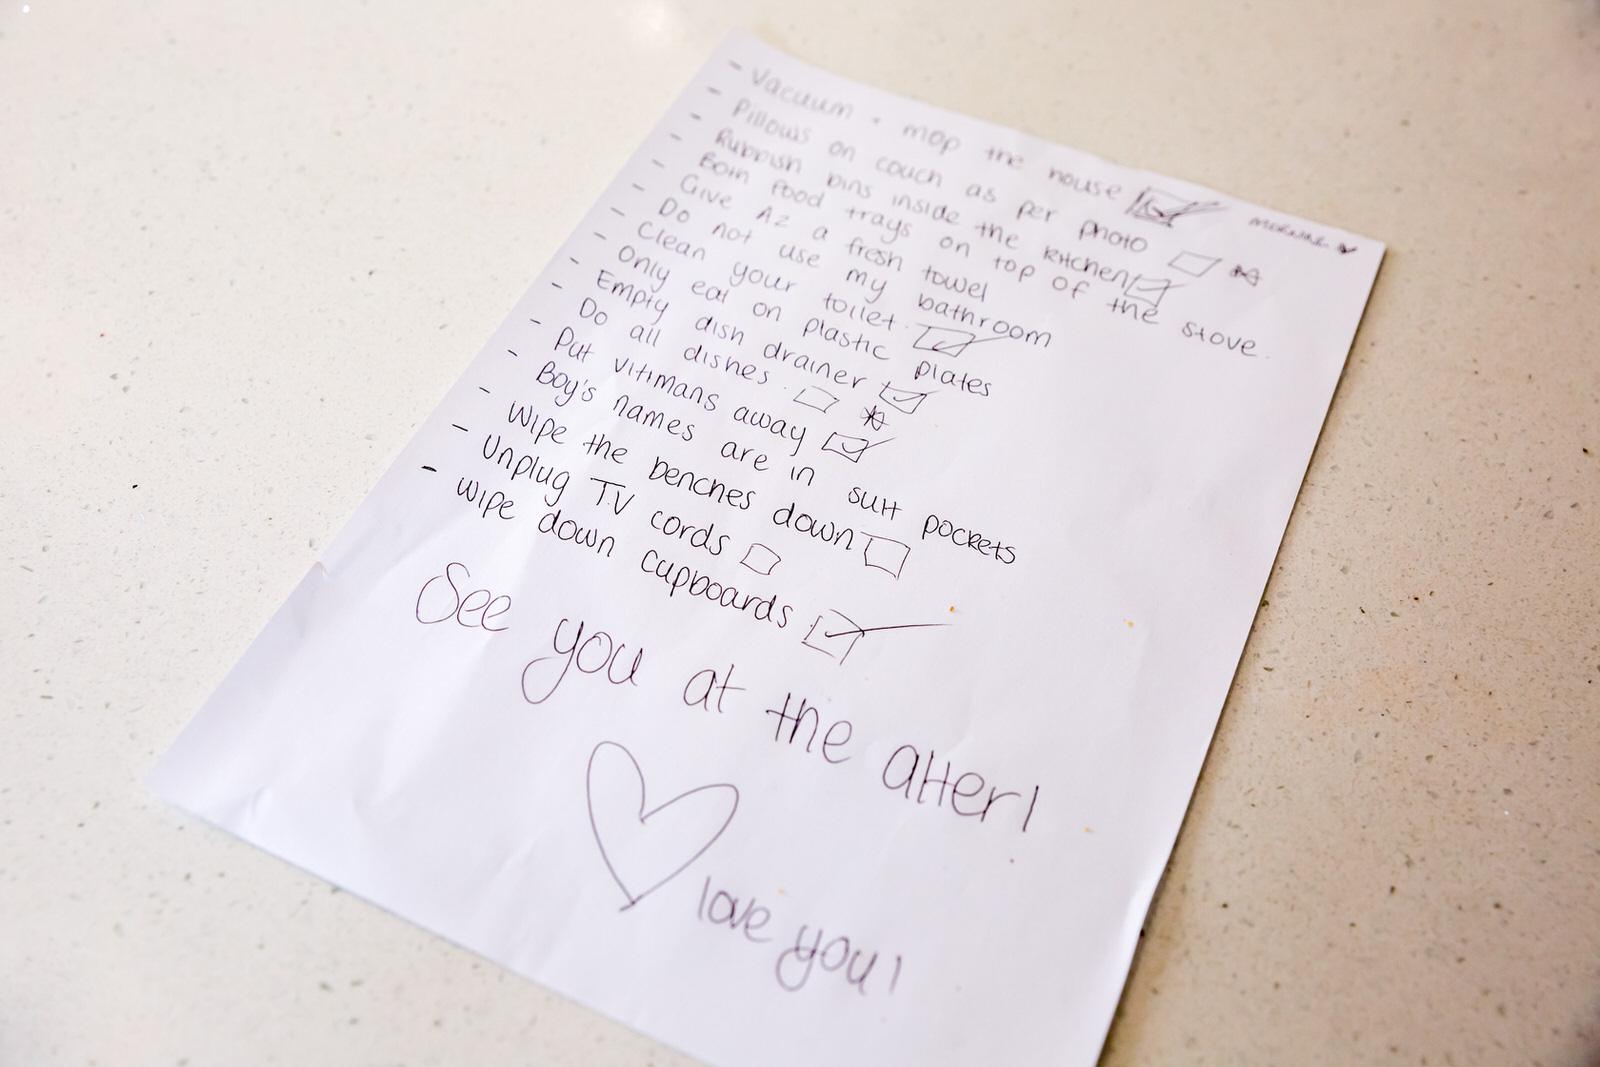 - Vacuum + mop the house morning
- Pillows on couch as per photo
- Rubbish bins inside the kitchen
- Both food trays on top of the stove.
- Give Az a fresh towel
- Do not use my bathroom
- Clean your toilet.
- Only eat on plastic plates
- Empty dish drainer
- Do all dishes.
- Put vitimans away
- Boy's names are in suit pockets
- Wipe the benches down
- Unplug TV cords
- Wipe down cupboards
See you at the alter!
love you!